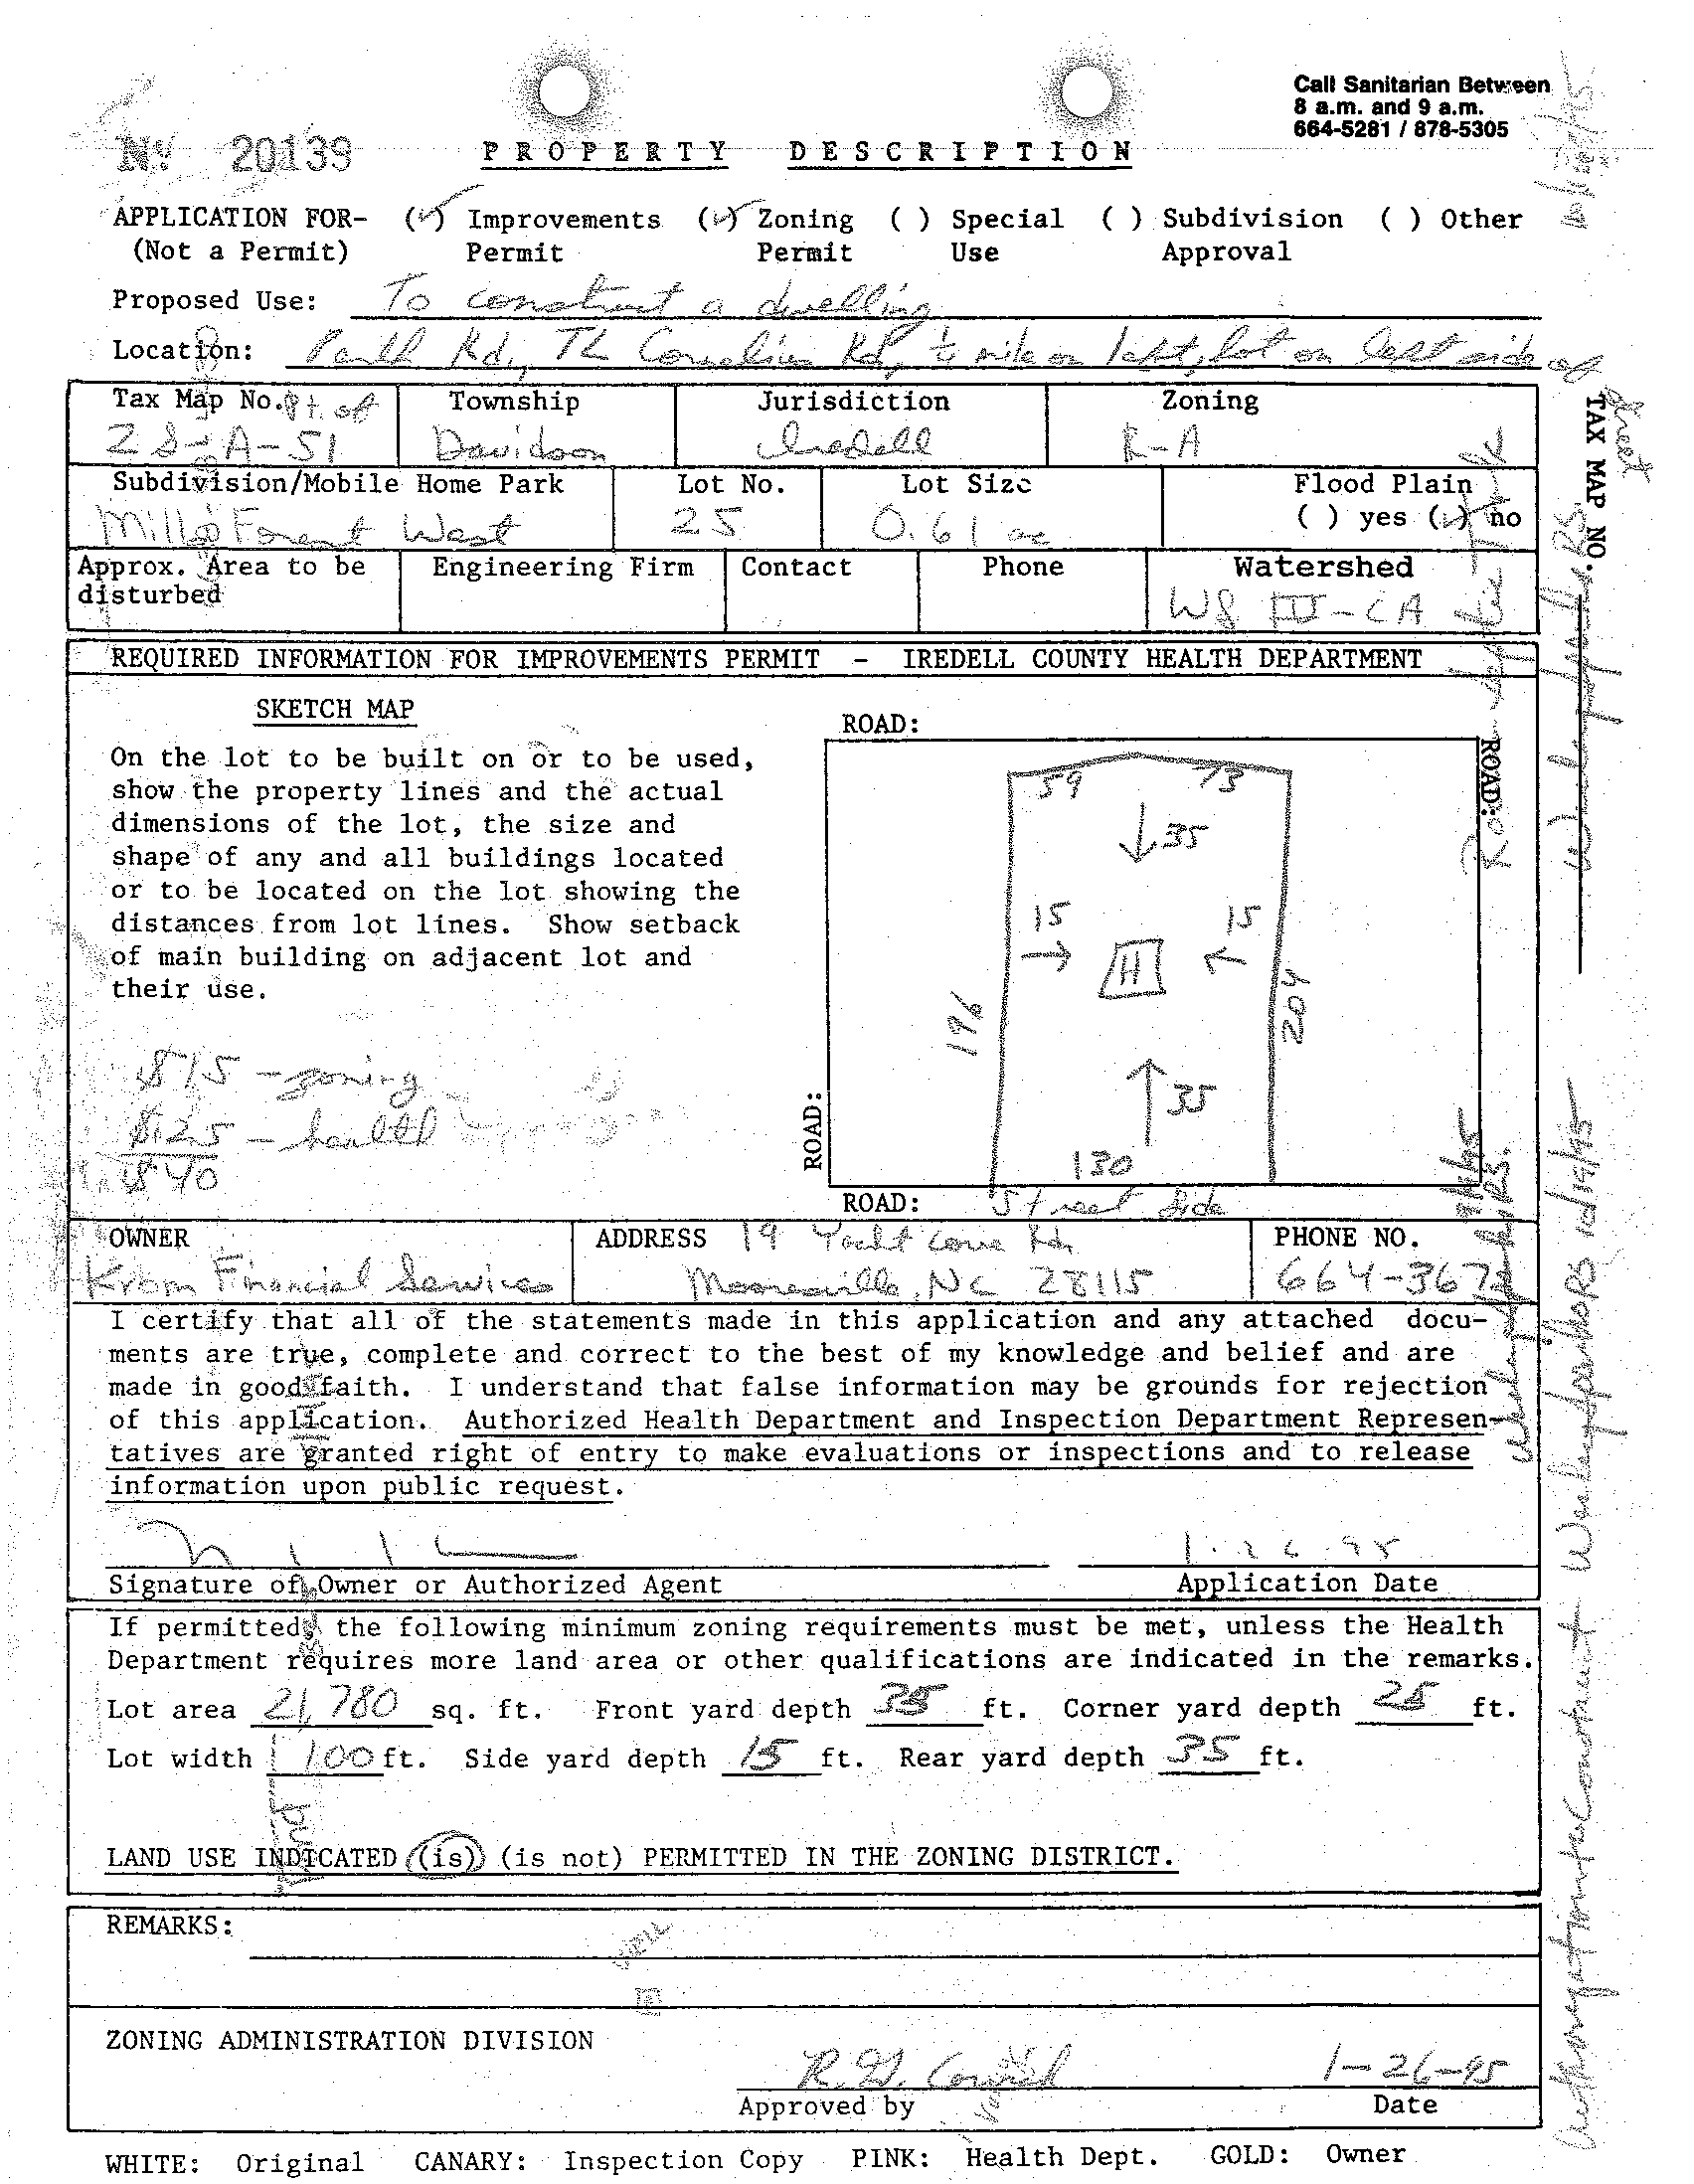 Call Sanitarian Between
8 a.m. and 9 a.m.
664-5281 / 878-5305
Nº 20139
PROPERTY DESCRIPTION
APPLICATION FOR- (✓) Improvements (✓) Zoning ( ) Special ( ) Subdivision ( ) Other
(Not a Permit) Permit Permit Use Approval
Proposed Use: To construct a dwelling
Location: Rd, TL Cornelius Rd, mile on left, lot on left side of
street
Tax Map No. Pt. of Township Jurisdiction Zoning
28-A-51 Davidson Iredell R-A
TAX MAP NO.
Subdivision/Mobile Home Park Lot No. Lot Size Flood Plain
Mills Forest West 25 0.61 ac ( ) yes (✓) no
Approx. Area to be Engineering Firm Contact Phone Watershed
disturbed WS III-CA
REQUIRED INFORMATION FOR IMPROVEMENTS PERMIT - IREDELL COUNTY HEALTH DEPARTMENT
SKETCH MAP
On the lot to be built on or to be used,
show the property lines and the actual
dimensions of the lot, the size and
shape of any and all buildings located
or to be located on the lot showing the
distances from lot lines. Show setback
of main building on adjacent lot and
their use.
$15 - zoning
$25 - health
$40
ROAD:
ROAD:
59 73
35
15 15
H
196 204
35
130
ROAD:
ROAD: Street Side
OWNER ADDRESS 19 Yacht Cove Rd. PHONE NO.
Krbm Financial Services Mooresville, NC 28115 664-367
I certify that all of the statements made in this application and any attached docu-
ments are true, complete and correct to the best of my knowledge and belief and are
made in good faith. I understand that false information may be grounds for rejection
of this application. Authorized Health Department and Inspection Department Represen-
tatives are granted right of entry to make evaluations or inspections and to release
information upon public request.
1-26-95
Signature of Owner or Authorized Agent Application Date
If permitted, the following minimum zoning requirements must be met, unless the Health
Department requires more land area or other qualifications are indicated in the remarks.
Lot area 21,780 sq. ft. Front yard depth 35 ft. Corner yard depth 25 ft.
Lot width 100 ft. Side yard depth 15 ft. Rear yard depth 35 ft.
LAND USE INDICATED (is) (is not) PERMITTED IN THE ZONING DISTRICT.
REMARKS:
ZONING ADMINISTRATION DIVISION
R.W. 1-26-95
Approved by Date
WHITE: Original CANARY: Inspection Copy PINK: Health Dept. GOLD: Owner
Authorization to Construct 10/19/95